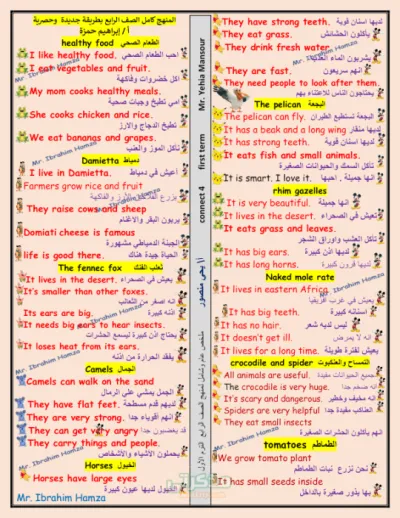 المنهج كامل الصف الرابع بطريقة جديدة وحصرية
أ / إبراهيم حمزة
healthy food الطعام الصحي
I like healthy food. احب الطعام الصحي
I eat vegetables and fruit.
اكل خضروات وفاكهة
My mom cooks healthy meals.
امي تطبخ وجبات صحية
She cooks chicken and rice.
تطبخ الدجاج والارز
We eat bananas and grapes.
نأكل الموز والعنب
Mr. Ibrahim Hamza
Damietta دمياط
I live in Damietta. أعيش في دمياط
Farmers grow rice and fruit
يزرع الفلاحين الارز والفاكهة
They raise cows and sheep
يربون البقر والاغنام
Domiati cheese is famous
الجبنة الدمياطي مشهورة
life is good there. الحياة جيدة هناك
The fennec fox ثعلب الفنك
It lives in the desert. يعيش في الصحراء
It's smaller than other foxes.
انه اصغر من الثعالب
Its ears are big. اذنه كبيرة
It needs big ears to hear insects.
يحتاج اذن كبيرة ليسمع الحشرات
It loses heat from its ears.
يفقد الحرارة من اذنه
Mr. Ibrahim Hamza
Camels الجمال
Camels can walk on the sand
الجمل يمشي علي الرمال
They have flat feet. لديهم قدم مسطحة
They are very strong. انهم أقوياء جدا
They can get very angry قد يغضبون جدا
They carry things and people.
يحملون الأشياء والأشخاص
Horses الخيول
Horses have large eyes
الخيول لديها عيون كبيرة
Mr. Ibrahim Hamza
Mr. Yehia Mansour
first term
connect 4
أ/ يحي منصور
ملخص عام وشامل لمنهج الصف الرابع الترم الأول
They have strong teeth. لديها اسنان قوية
They eat grass. يأكلون الحشائش
They drink fresh water.
يشربون الماء العذب
They are fast. انهم سريعون
They need people to look after them.
يحتاجون الناس للاعتناء بهم
The pelican البجعة
The pelican can fly. البجعة تستطيع الطيران
It has a beak and a long wing لديها منقار
It has strong teeth. لديها اسنان قوية
It eats fish and small animals.
تأكل السمك والحيوانات الصغيرة
It is smart. I love it. انها جميلة . احبها
rhim gazelles
It is very beautiful. انها جميلة
It lives in the desert. تعيش في الصحراء
It eats grass and leaves.
تأكل العشب واوراق الشجر
It has big ears. لديها اذن كبيرة
It has long horns. لديها قرون كبيرة
Naked mole rate
It lives in eastern Africa.
يعيش في غرب أفريقيا
It has big teeth. اسنانه كبيرة
It has no hair. ليس لديه شعر
It doesn't get ill. انه لا يمرض
It lives for a long time. يعيش لفترة طويلة
crocodile and spider التمساح والعنكبوت
All animals are useful. جميع الحيوانات مفيدة
The crocodile is very huge. انه ضخم جدا
It's scary and dangerous. انه مخيف وخطير
Spiders are very helpful العناكب مفيدة جدا
They eat small insects
انهم يأكلون الحشرات الصغيرة
Mr. Ibrahim Hamza
tomatoes الطماطم
We grow tomato plant
نحن نزرع نبات الطماطم
It has small seeds inside
بها بذور صغيرة بالداخل